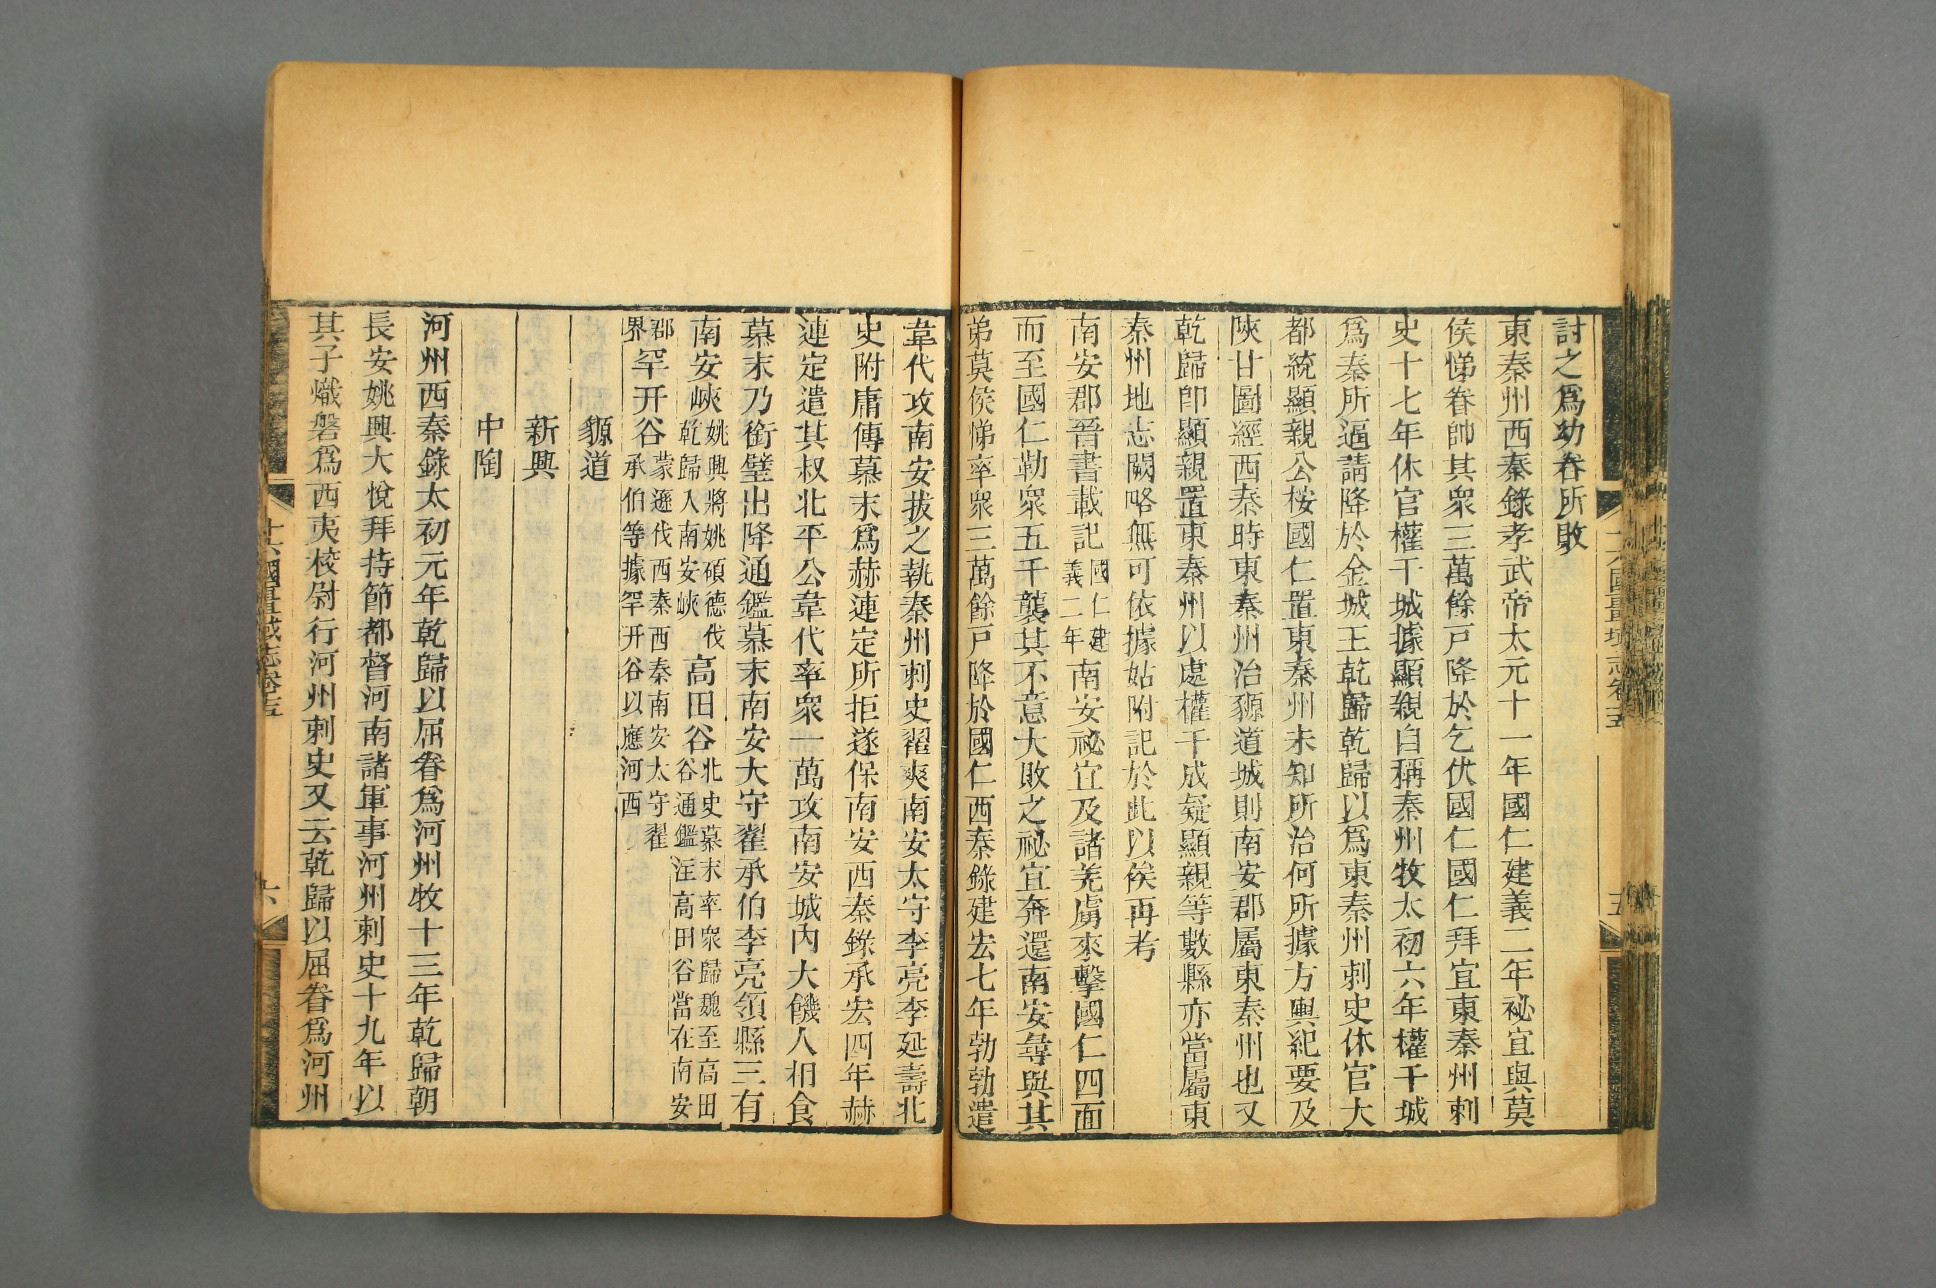 討之爲幼眷所敗
東秦州西秦錄孝武帝太元十一年國仁建義二年祕宜與莫
侯悌眷帥其衆三萬餘戸降於乞伏國仁國仁拜宜東秦州刺
史十七年休官權干城據顯親自稱秦州牧太初六年權干城
爲秦所逼請降於金城王乾歸乾歸以爲東秦州刺史休官大
都統顯親公桉國仁置東秦州未知所治何所據方輿紀要及
陝甘圖經西秦時東秦州治獂道城則南安郡屬東秦州也又
乾歸卽顯親置東秦州以處權干成疑顯親等數縣亦當屬東
秦州地志闕略無可依據姑附記於此以俟再考
南安郡晉書載記國仁建義二年南安祕宜及諸羌虜來擊國仁四面
而至國仁勒衆五千襲其不意大敗之祕宜奔還南安尋與其
弟莫侯悌率衆三萬餘戸降於國仁西秦錄建宏七年勃勃遣
韋代攻南安拔之執秦州刺史翟爽南安太守李亮李延壽北
史附庸傳慕末爲赫連定所拒遂保南安西秦錄承宏四年赫
連定遣其叔北平公韋代率衆一萬攻南安城內大饑人相食
慕末乃銜璧出降通鑑慕末南安大守翟承伯李亮領縣三有
南安峽姚興將姚碩德伐乾歸入南安峽高田谷北史慕末率衆歸魏至高田谷通鑑注高田谷當在南安
郡界罕幵谷蒙遜伐西秦西秦南安太守翟承伯等據罕幵谷以應河西
獂道
新興
中陶
河州西秦錄太初元年乾歸以屈眷爲河州牧十三年乾歸朝
長安姚興大悅拜持節都督河南諸軍事河州刺史十九年以
其子熾磐爲西夷校尉行河州刺史又云乾歸以屈眷爲河州
十六國疆域志卷十五
六